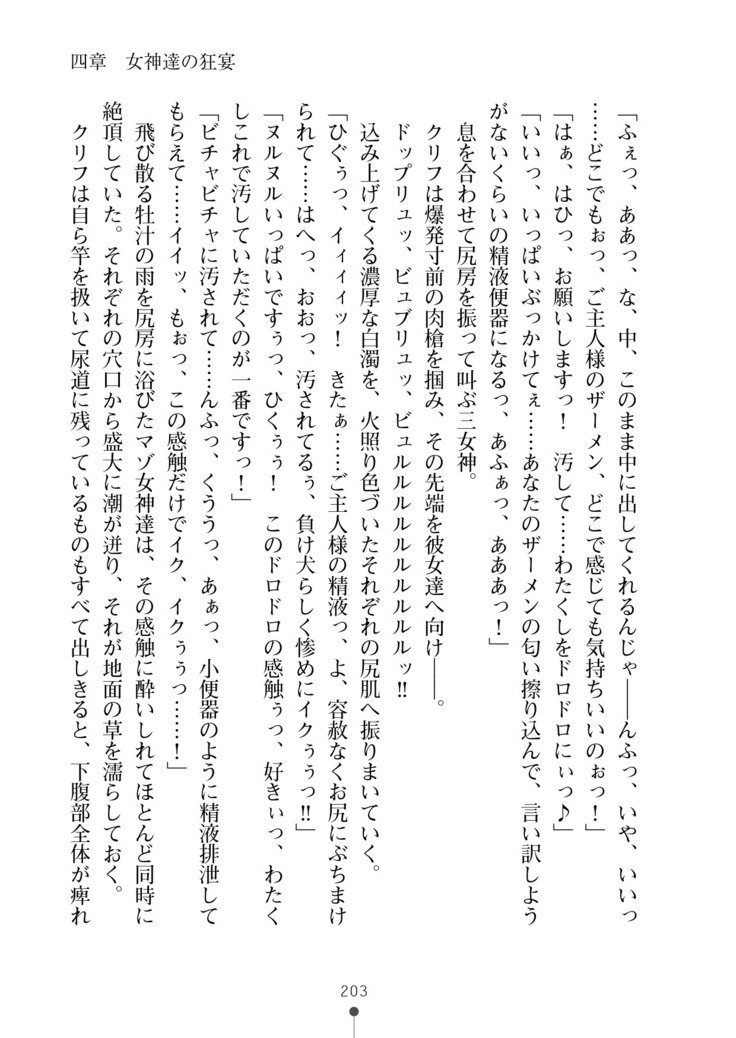 四章　女神達の狂宴
「ふぇっ、ああっ、な、中、このまま中に出してくれるんじゃ――んふっ、いや、いいっ
……どこでもぉっ、ご主人様のザーメン、どこで感じても気持ちいいのぉっ！」
「はぁ、はひっ、お願いしますっ！　汚して……わたくしをドロドロにぃっ♪」
「いいっ、いっぱいぶっかけてぇ……あなたのザーメンの匂い擦り込んで、言い訳しよう
がないくらいの精液便器になるっ、あふぁっ、あああっ！」
　息を合わせて尻房を振って叫ぶ三女神。
　クリフは爆発寸前の肉槍を掴み、その先端を彼女達へ向け――。
　ドップリュッ、ビュブリュッ、ビュルルルルルルルルルッ‼
　込み上げてくる濃厚な白濁を、火照り色づいたそれぞれの尻肌へ振りまいていく。
「ひぐぅっ、イィィィッ！　きたぁ……ご主人様の精液っ、よ、容赦なくお尻にぶちまけ
られて……はへっ、おおっ、汚されてるぅ、負け犬らしく惨めにイクぅぅっ‼」
「ヌルヌルいっぱいですぅっ、ひくぅぅ！　このドロドロの感触ぅっ、好きぃっ、わたく
しこれで汚していただくのが一番ですっ！」
「ビチャビチャに汚されて……んふっ、くううっ、あぁっ、小便器のように精液排泄して
もらえて……イイッ、もぉっ、この感触だけでイク、イクぅぅっ……！」
　飛び散る牡汁の雨を尻房に浴びたマゾ女神達は、その感触に酔いしれてほとんど同時に
絶頂していた。それぞれの穴口から盛大に潮が迸り、それが地面の草を濡らしておく。
　クリフは自ら竿を扱いて尿道に残っているものもすべて出しきると、下腹部全体が痺れ
203